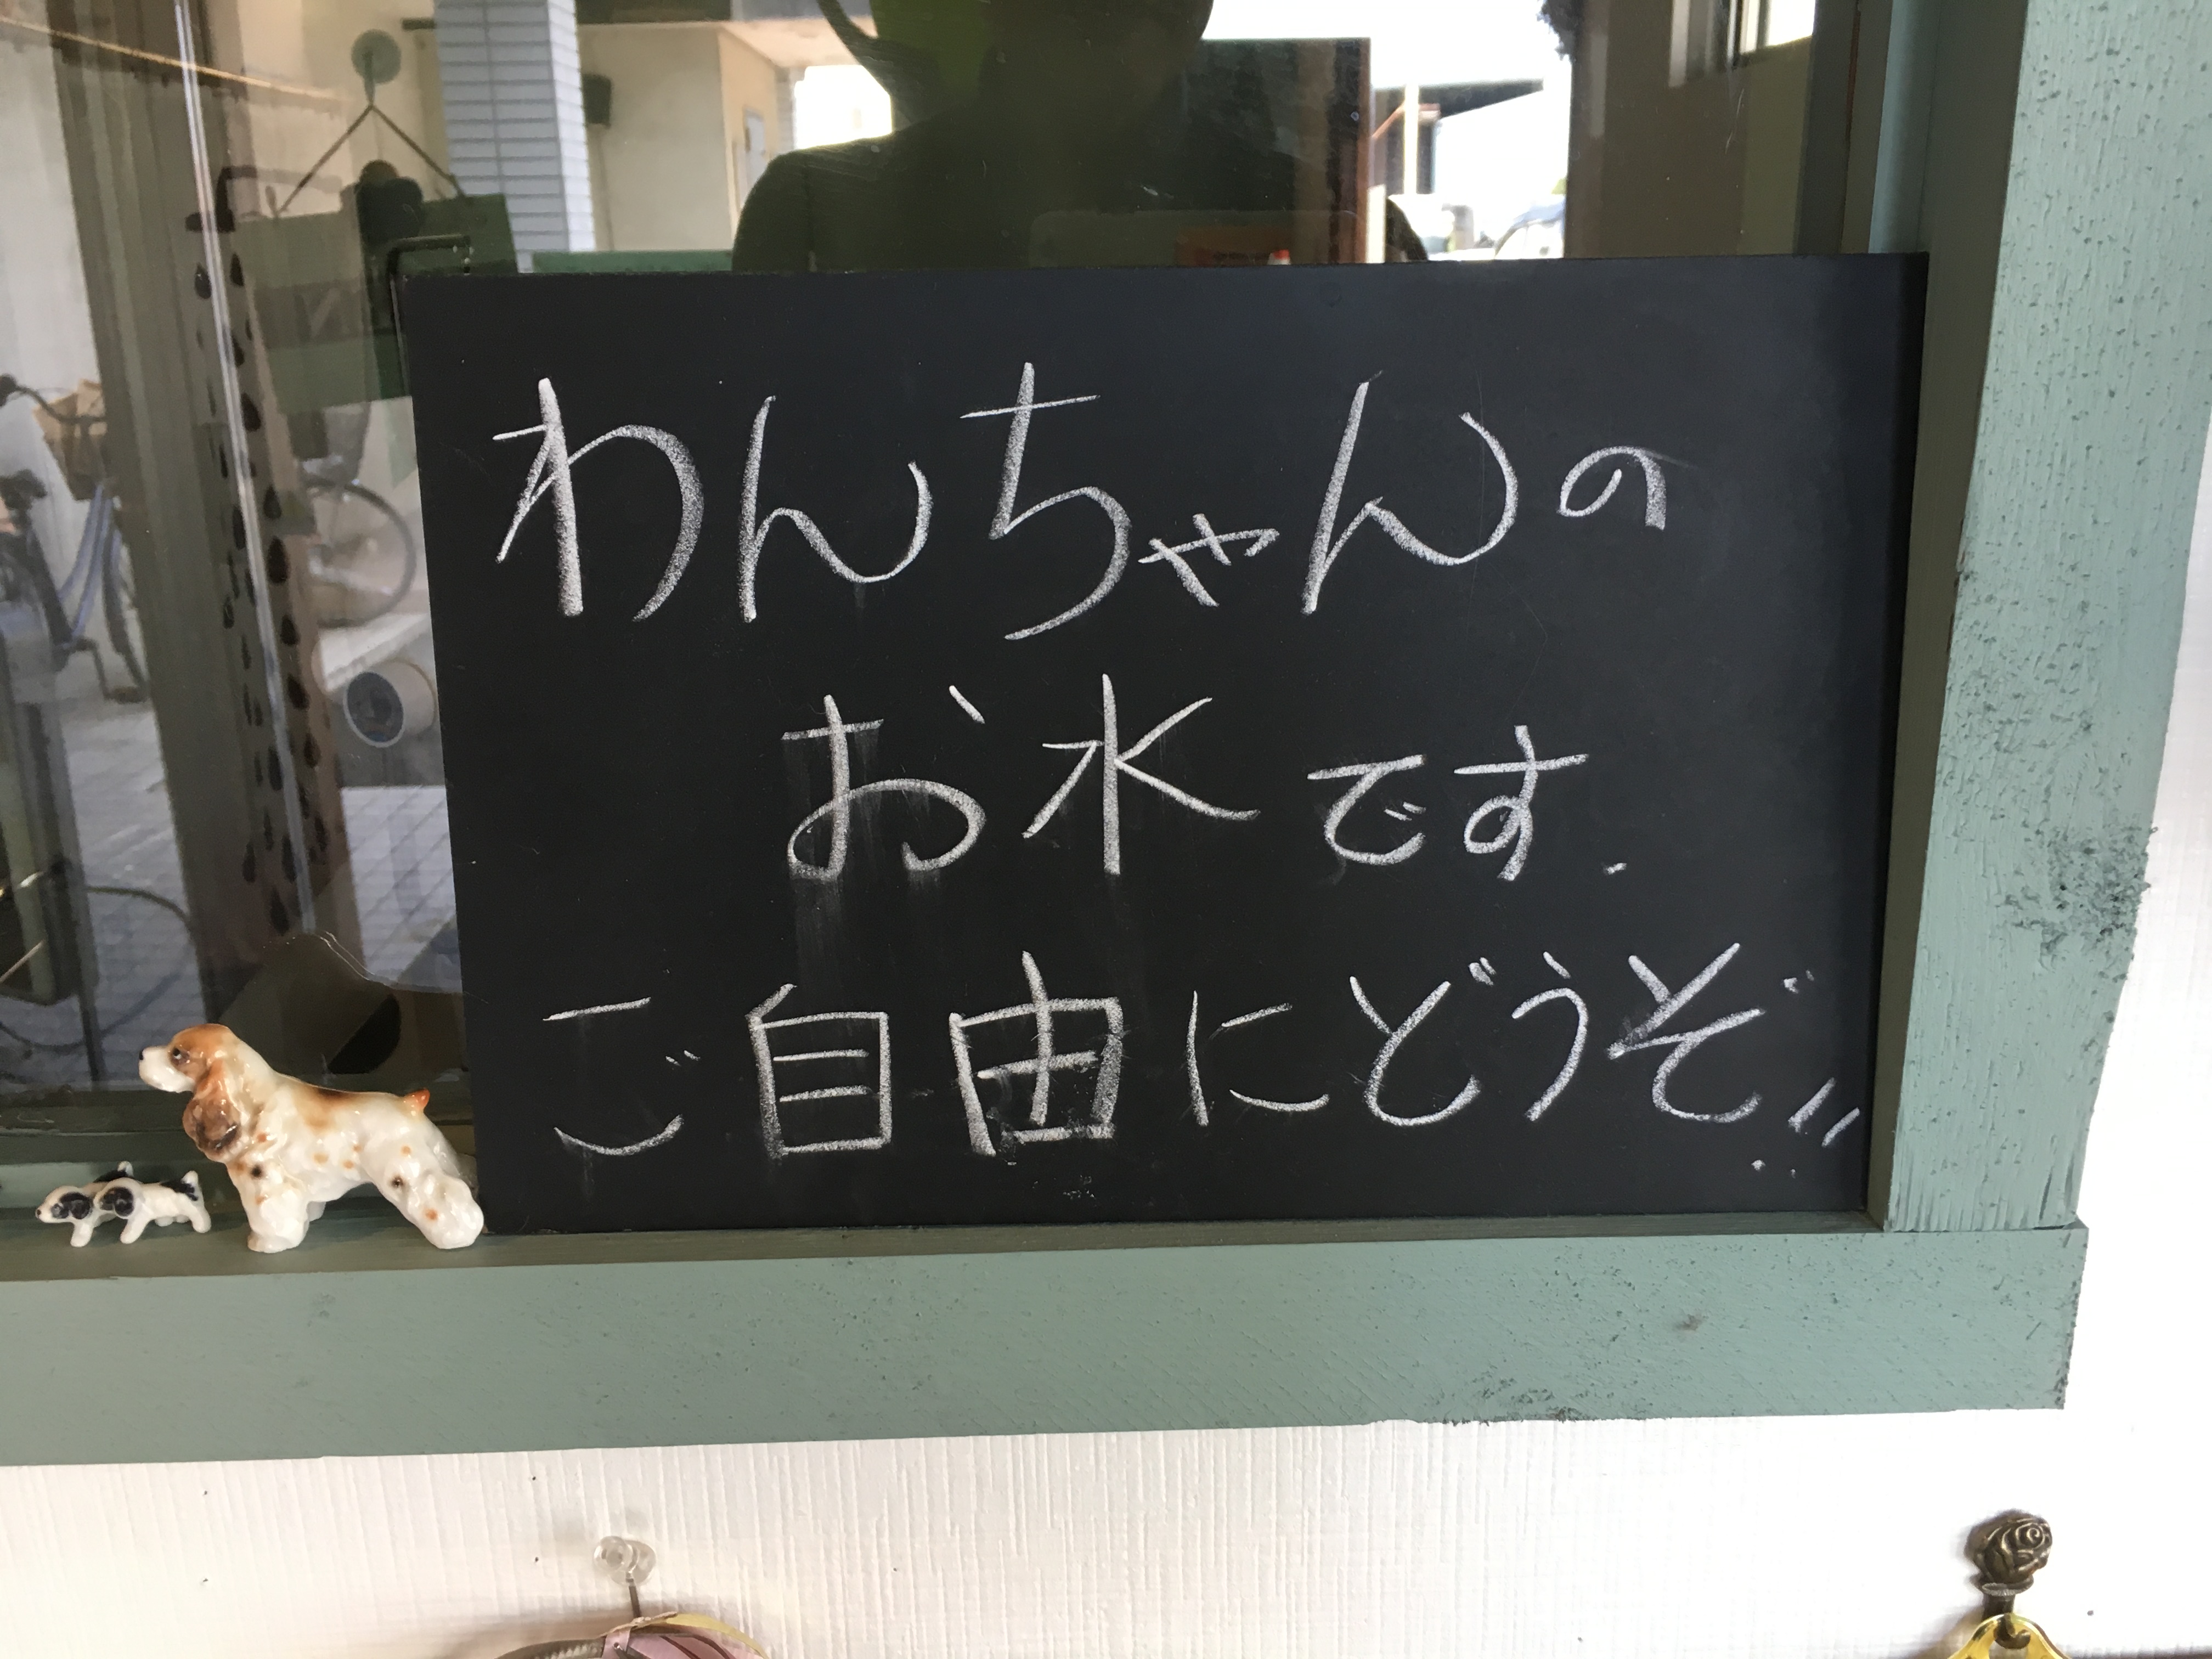 わんちゃんの
お水です.
ご自由にどうぞ!!